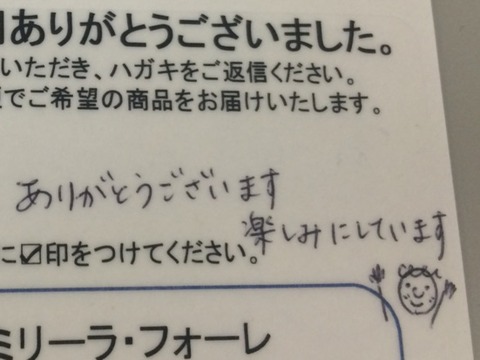 ありがとうございました。
いただき、ハガキをご返信ください。
でご希望の商品をお届けいたします。
ありがとうございます
楽しみにしています
に☑印をつけてください。
ミリーラ・フォーレ